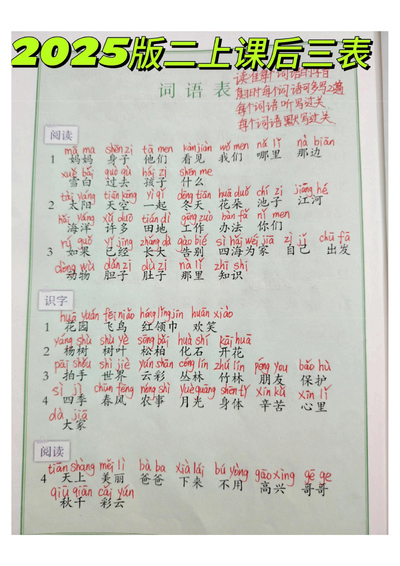 2025版二上课后三表
读准每个词语的字音
词语表
每个词语可多写2遍
每个词语 听写过关
每个词语默写过关
阅读
mā ma shēn zi tā men kàn jiàn wǒ men nǎ lǐ nà biān
1 妈妈 身子 他们 看见 我们 哪里 那边
xuě bái guò qù hái zi shén me
雪白 过去 孩子 什么
tài yáng tiān kōng yì qǐ dōng tiān huā duǒ chí zi jiāng hé
2 太阳 天空 一起 冬天 花朵 池子 江河
hǎi yáng xǔ duō tián dì gōng zuò bàn fǎ nǐ men
海洋 许多 田地 工作 办法 你们
rú guǒ yǐ jīng zhǎng dà gào bié sì hǎi wéi jiā zì jǐ chū fā
3 如果 已经 长大 告别 四海为家 自己 出发
dòng wù dǎn zi dù zi nà lǐ zhī shi
动物 胆子 肚子 那里 知识
识字
huā yuán fēi niǎo hóng lǐng jīn huān xiào
1 花园 飞鸟 红领巾 欢笑
yáng shù shù yè sōng bǎi huà shí kāi huā
2 杨树 树叶 松柏 化石 开花
pāi shǒu shì jiè yún cǎi cóng lín zhú lín péng you bǎo hù
3 拍手 世界 云彩 丛林 竹林 朋友 保护
sì jì chūn fēng nóng shì yuè guāng shēn tǐ xīn kǔ xīn lǐ
4 四季 春风 农事 月光 身体 辛苦 心里
dà jiā
大家
阅读
tiān shàng měi lì bà ba xià lái bú yòng gāo xìng gē ge
4 天上 美丽 爸爸 下来 不用 高兴 哥哥
qiū qiān cǎi yún
秋千 彩云